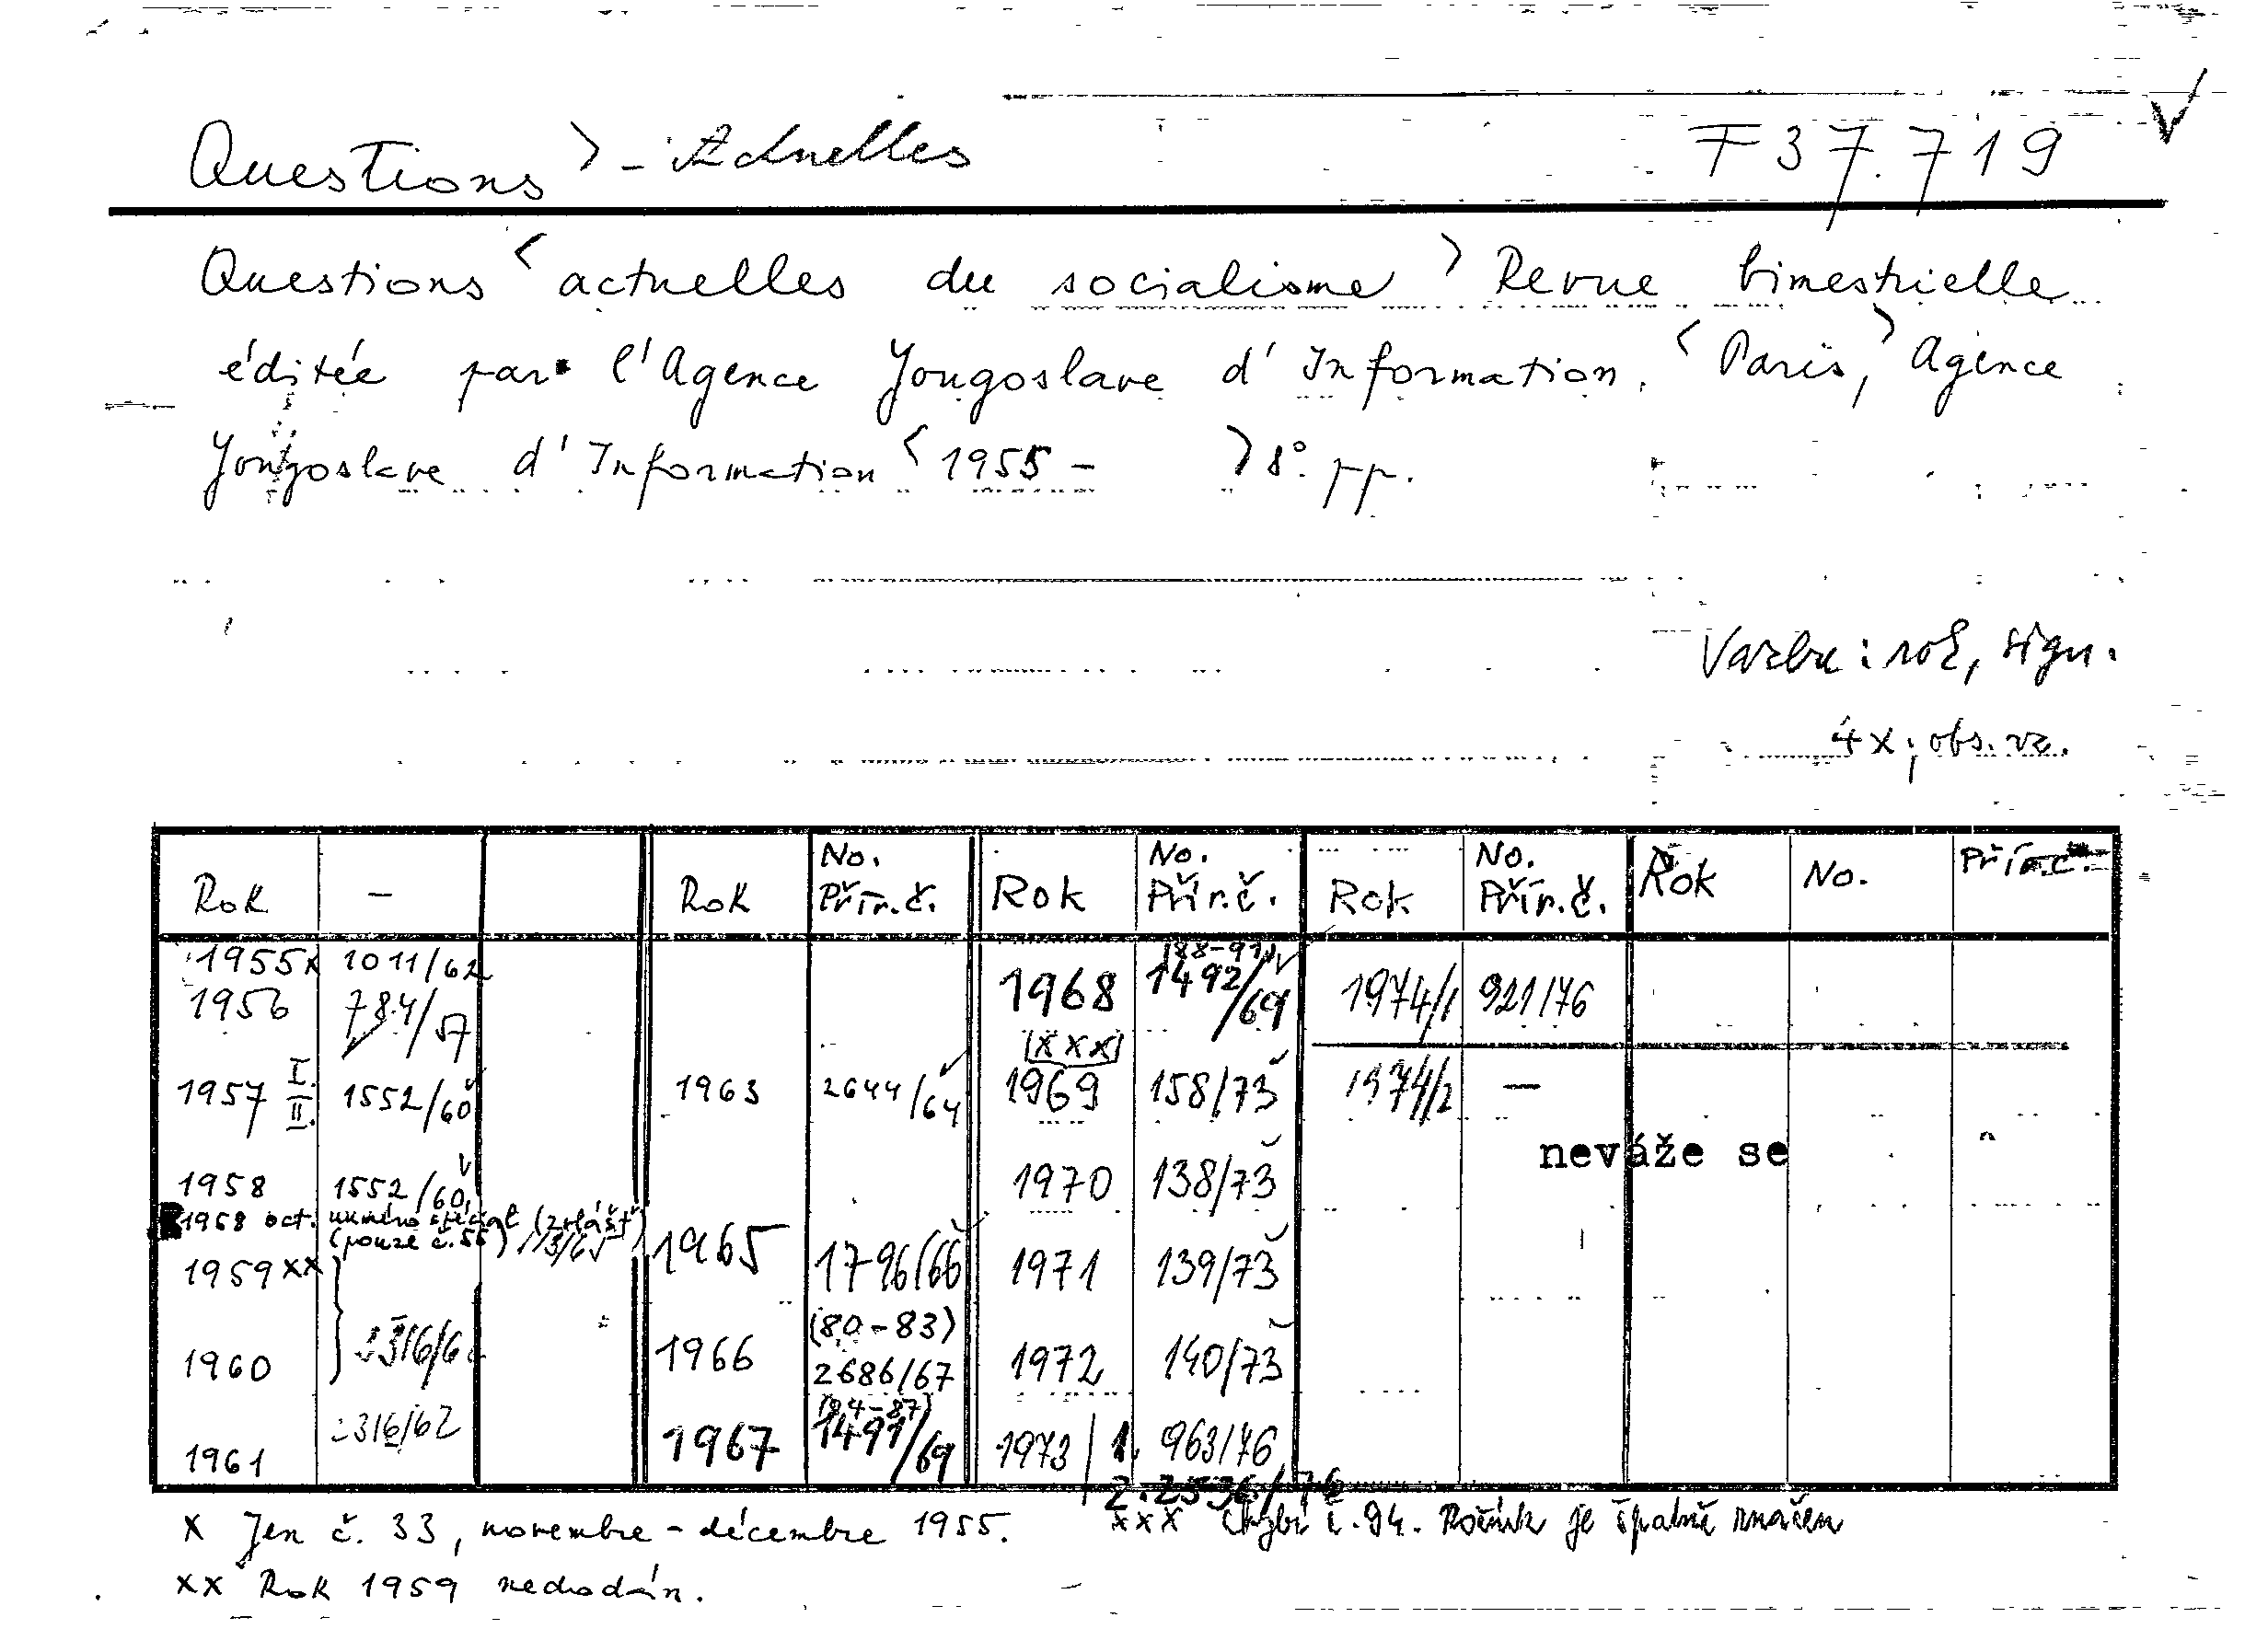 Questions > - Actuelles F 37.719 √
Questions < actuelles du socialisme > Revue bimestrielle
éditée par l'Agence Yougoslave d'Information. < Paris, > Agence
Yougoslave d'Information < 1955 - > 8°. pp.
Vazba: rok, sign.
4x, obs. vz.
Rok - Rok No. Přír.č. Rok No. Přír.č. Rok No. Přír.č. Rok No. Přír.č.
1955x 1011/62
1956 784/57
1957 I. II. 1552/60
1958 1552/60
1958 oct. numéro spécial (zvlášť)
(pouze č. 55)
1959 xx
1960
1961 316/62
1963 2644/64
1965 1796/66
1966 (80-83) 2686/67
1967 (84-87) 1491/69
1968 (88-91) 1492/69
(xxx)
1969 158/73
1970 138/73
1971 139/73
1972 140/73
1973/1. 963/76
2. 2536/76
1974/1 921/76
1974/2 -
neváže se
x Jen č. 33, novembre - décembre 1955.
xxx Chybí č. 94. Ročník je špatně značen
xx Rok 1959 nedodán.